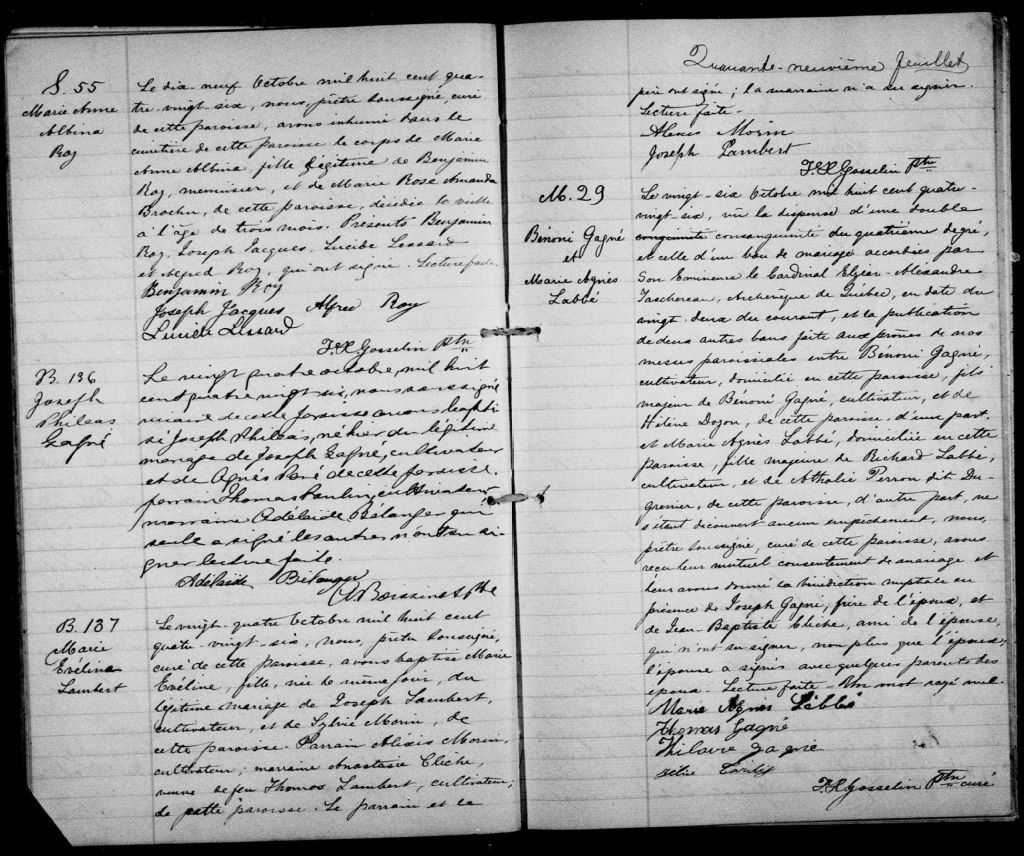 S. 55
Marie Anne
Albina
Roy
Le dix-neuf Octobre mil huit cent qua-
tre-vingt-six, nous, prêtre soussigné, curé
de cette paroisse, avons inhumé dans le
cimetière de cette paroisse le corps de Marie
Anne Albina, fille légitime de Benjamin
Roy, menuisier, et de Marie Rose Amanda
Brochu, de cette paroisse, décédée la veille
à l'âge de trois mois. Présents Benjamin
Roy, Joseph Jacques, Lucide Lessard
et Alfred Roy, qui ont signé. Lecture faite.
Benjamin Roy
Joseph Jacques Alfred Roy
Lessard
F. X. Gosselin Ptre
B. 136
Joseph
Phileas
Gagné
Le vingt quatre octobre, mil huit
cent quatre vingt six, nous soussigné
vicaire de cette paroisse avons bapti
sé Joseph Phileas, né hier du légitime
mariage de Joseph Gagné, cultivateur
et de Agnès de cette paroisse.
parrain Thomas Poulin, cultivateur
marraine Adélaide Bélanger qui
seule a signé les autres n'ont su si-
gner lecture faite.
Adélaide Bélanger
Ptre
B. 137
Marie
Evélina
Lambert
Le vingt-quatre Octobre mil huit cent
quatre-vingt-six, nous, prêtre soussigné,
curé de cette paroisse, avons baptisé Marie
Evéline, fille, née le même jour, du
légitime mariage de Joseph Lambert,
cultivateur, et de Sylvie Morin, de
cette paroisse. Parrain Alexis Morin,
cultivateur; marraine Anastasie Cliche,
veuve de feu Thomas Lambert, cultivateur,
de cette paroisse. Le parrain et le
Quarante-neuvième feuillet
père ont signé; la marraine n'a su signer.
Lecture faite.
Alexis Morin
Joseph Lambert
F. X. Gosselin Ptre
M. 29
Bénoni Gagné
et
Marie Agnès
Labbé
Le vingt-six Octobre mil huit cent quatre-
vingt-six, vu la dispense d'une double
consanguinité du quatrième degré,
et celle d'un ban de mariage accordées par
Son Eminence le Cardinal Elzéar-Alexandre
Taschereau, Archevêque de Québec, en date du
vingt-deux du courant, et la publication
de deux autres bans faite aux prônes de nos
messes paroissiales entre Bénoni Gagné,
cultivateur, domicilié en cette paroisse, fils
majeur de Bénoni Gagné, cultivateur, et de
Hélène Doyon, de cette paroisse, d'une part,
et Marie Agnès Labbé, domiciliée en cette
paroisse, fille majeure de Richard Labbé,
cultivateur, et de Athalie Perron dit Du-
grenier, de cette paroisse, d'autre part, ne
s'étant découvert aucun empêchement, nous,
prêtre soussigné, curé de cette paroisse, avons
reçu leur mutuel consentement de mariage et
leur avons donné la bénédiction nuptiale en
présence de Joseph Gagné, frère de l'époux, et
de Jean-Baptiste Cliche, ami de l'épouse,
qui n'ont su signer, non plus que l'époux;
l'épouse a signé avec quelques parents des
époux. Lecture faite. Un mot rayé nul.
Marie Agnès Labbé
Thomas Gagné
Hilaire Gagné
F. X. Gosselin Ptre curé